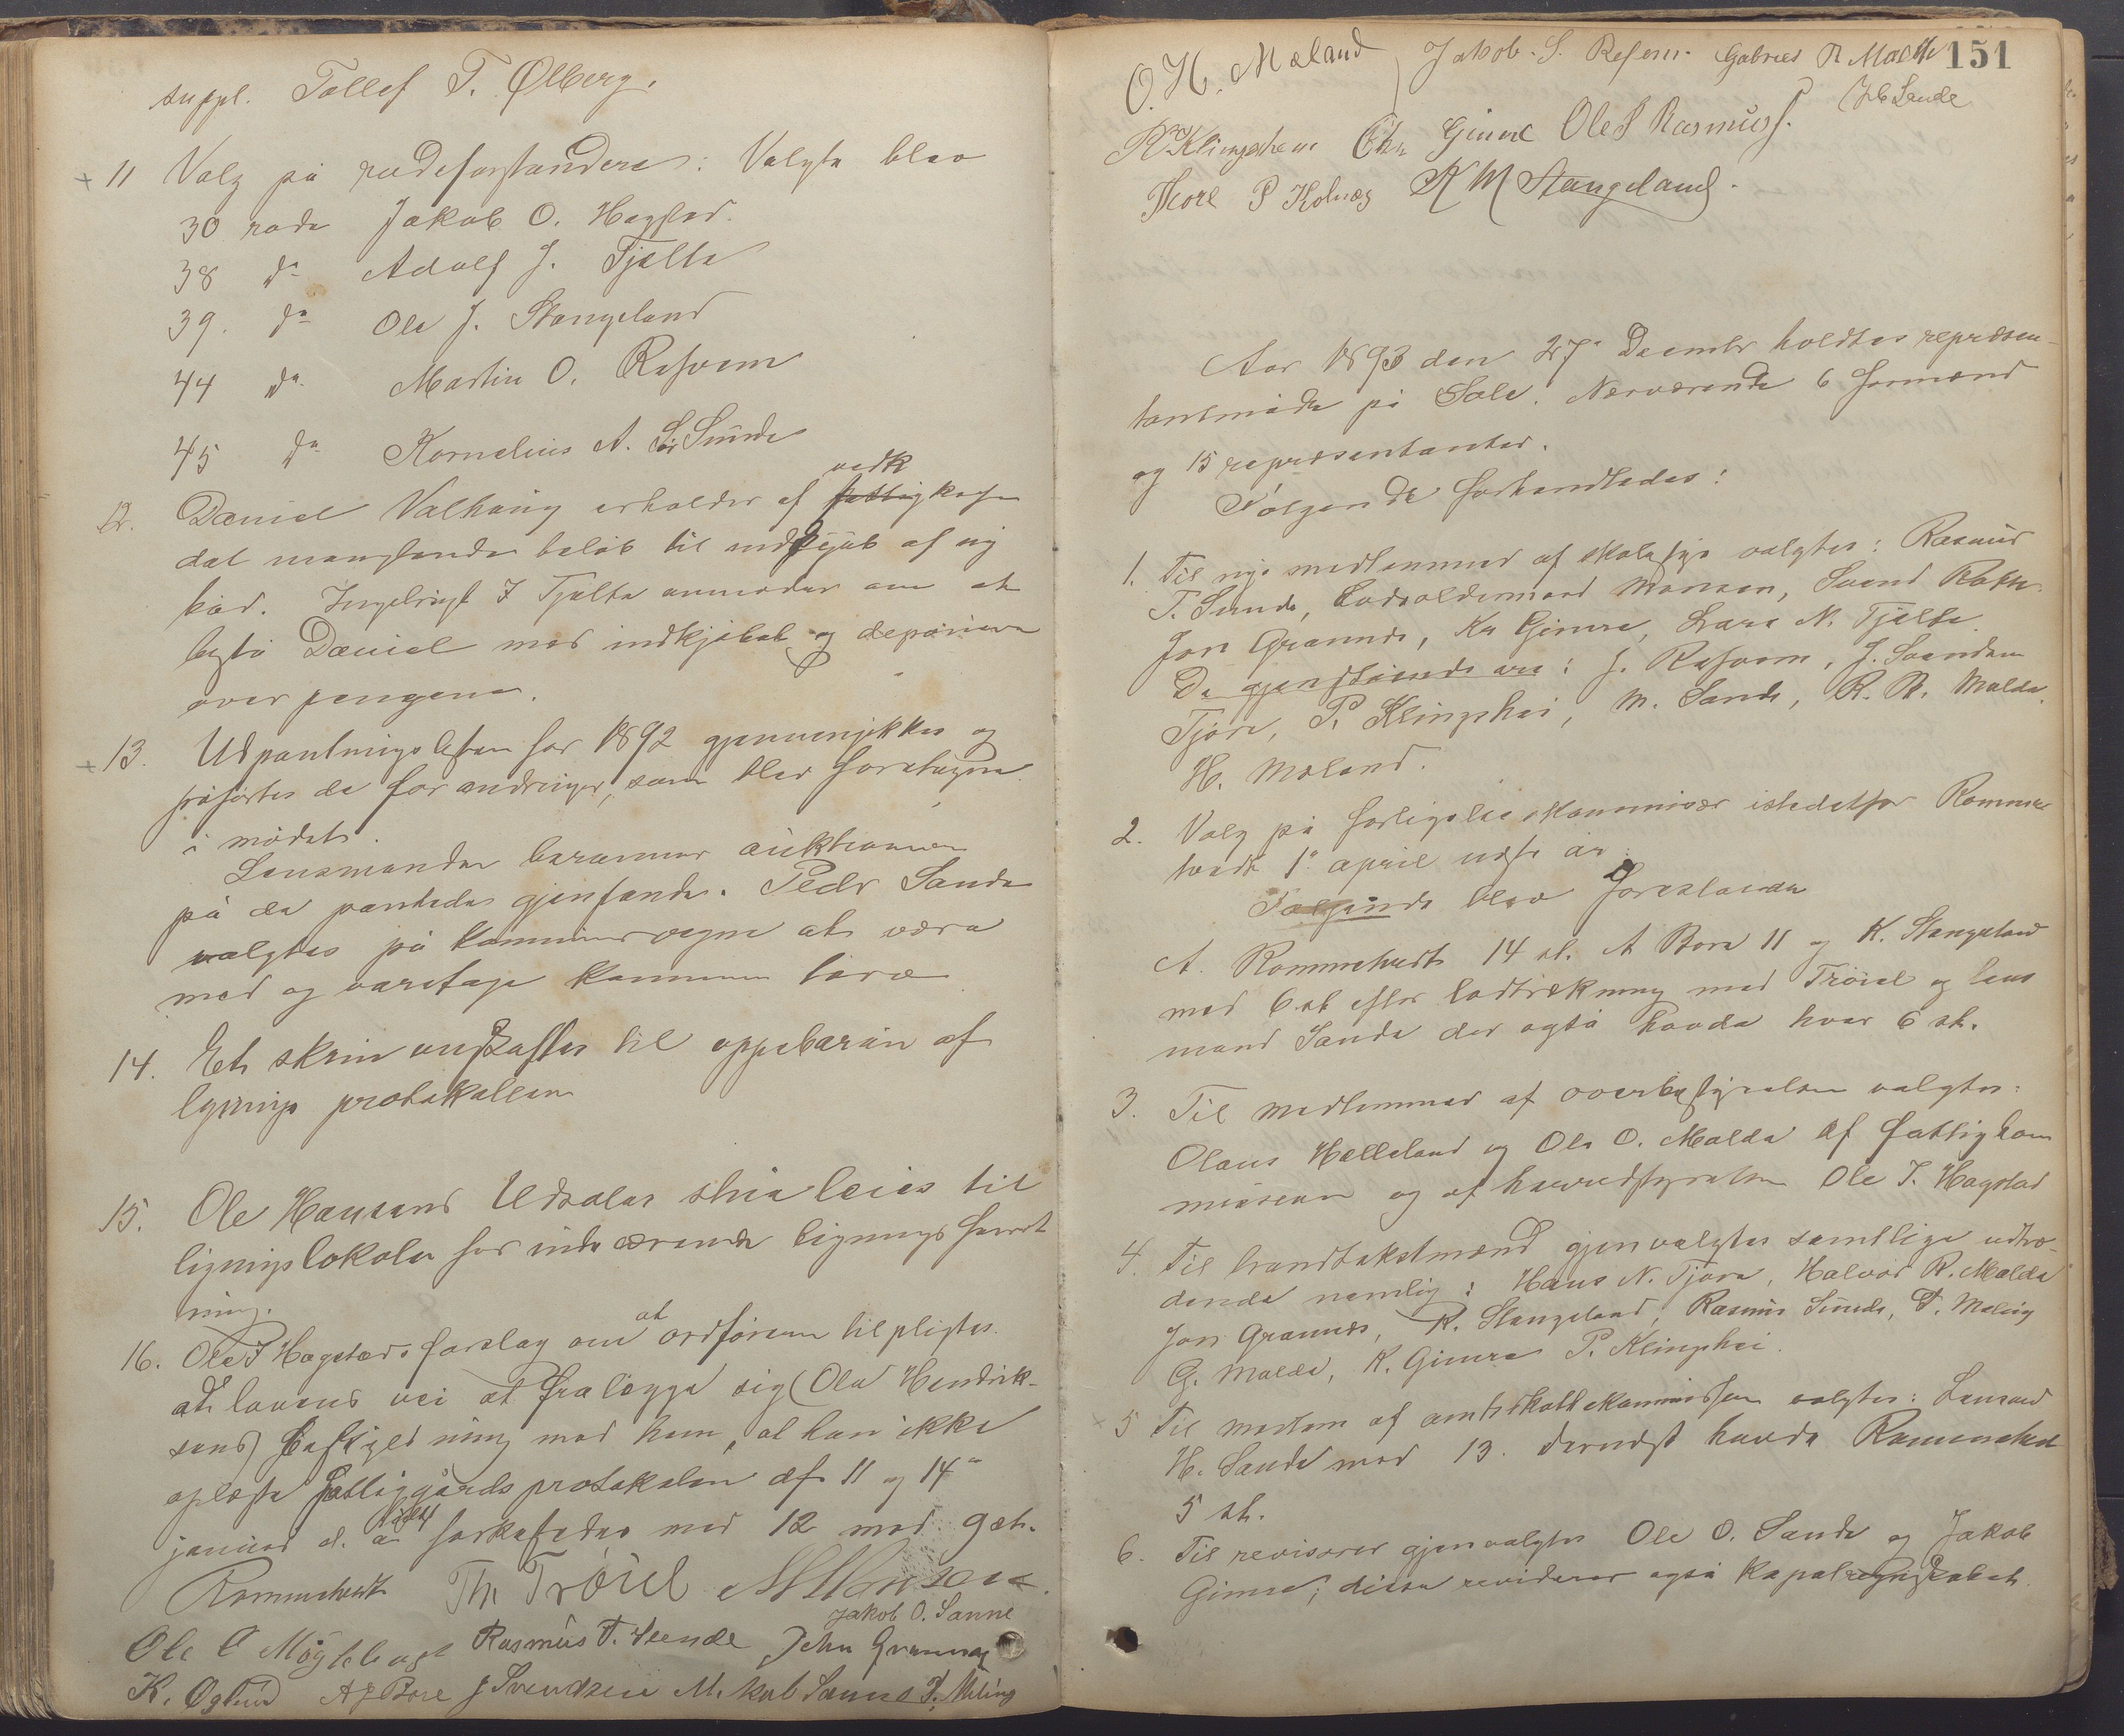 suppl. Tollef T. Ølberg.
+ 11 Valg på rodeforstandere: Valgte blev
30 rode Jakob O. Hagstad.
38 do Adolf J. Tjelta
39. do Ole J. Stangeland
44 do Martin O. Røfsvem
45 do Kornelius A. Sör Sunde
vedk
12. Daniel Valhaug erholder af fattigkassen
det manglende beløb til indkjøb af ny
båd. Ingebrigt I Tjelta anmodes om at
bistå Daniel med indkjøbet og deponere
over pengene.
+ 13. Udpantningslisten for 1892 gjennemgikkes og
påførtes de forandringer, som blev foretagne
i mødet.
Lensmanden berammer auktionen
på de pantede gjenstande. Peder Sande
valgtes på kommunens vegne at være
med og varetage kommunens tarv
14. Et skrin anskaffes til oppebaring af
lignings protokollen
15. Ole Hansens Udsalgs stue leies til
ligningslokale for indeværende ligningsforret
ning.
16. Ole I Hagstads forslag om at ordføreren tilpligtes
ad lovens vei at fralægge sig (Ole Hendrik-
sens) beskyldning mod ham, at han ikke
oplæste fattiggårdsprotokolen af 11 og 14de
januar d. å. forkastedes med 12 mod 9 st.
Rommetvedt Th Tröiel A M Hansen
Jakob O. Sømme
Ole O Myklebust Rasmus T. Sunde John Grannes
K. Øglænd A J Bore J Svendsen M. Jakob Sømme P. Meling
151
O. H. Mæland Jakob S. Refsem Gabriel R Malde
J b Sande
P. Klingsheim Chr Gimre Ole S Rasmuss.
Thore P Kolnes K M Stangeland.
Aar 1893 den 27de Decembr holdtes repræsen-
tantmøde på Sole. Nærværende 6 formænd
og 15 repræsentanter.
Følgende forhandledes:
1. Til nye medlemmer af skolestyre valgtes: Rasmus
T. Sunde, Godseldermand Monsen, Svend Røfsn.
Jon Grannes, Kr Gimre, Lars N. Tjelta.
De gjenstående ere: J. Røfsvem, J. Svendsen
Tjøre, P. Klingshei, M. Sande, R. R. Malde
H. Mæland.
2. Valg på forligelseskommissær istedetfor Rommet
vedt 1ste april næste år.
Følgende blev foreslåede
A. Rommetvedt 14 st. A Bore 11 og K. Stangeland
med 6 st efter lodtrækning med Tröiel og lens
mand Sande der også havde hver 6 st.
3. Til medlemmer af overbestyrelsen valgtes:
Olaus Hælleland og Ole O. Malde af fattigkom
missionen og af herredsstyrelsen Ole I. Hagstad
4. Til brandtakstmænd gjenvalgtes samtlige udtræ-
dende nemlig: Hans N. Tjøre, Halvor R. Malde
Jon Grannes, K. Stangeland, Rasmus Sunde, P. Meling
G. Malde, K. Gimre P. Klingshei.
+ 5 Til medlem af amtskattekommissionen valgtes: Lensmand
H. Sande med 13. dernæst havde Rommetvedt
5 st.
6. Til revisorer gjenvalgtes Ole O. Sande og Jakob
Gimre, disse reviderer også kapelregnskabet.